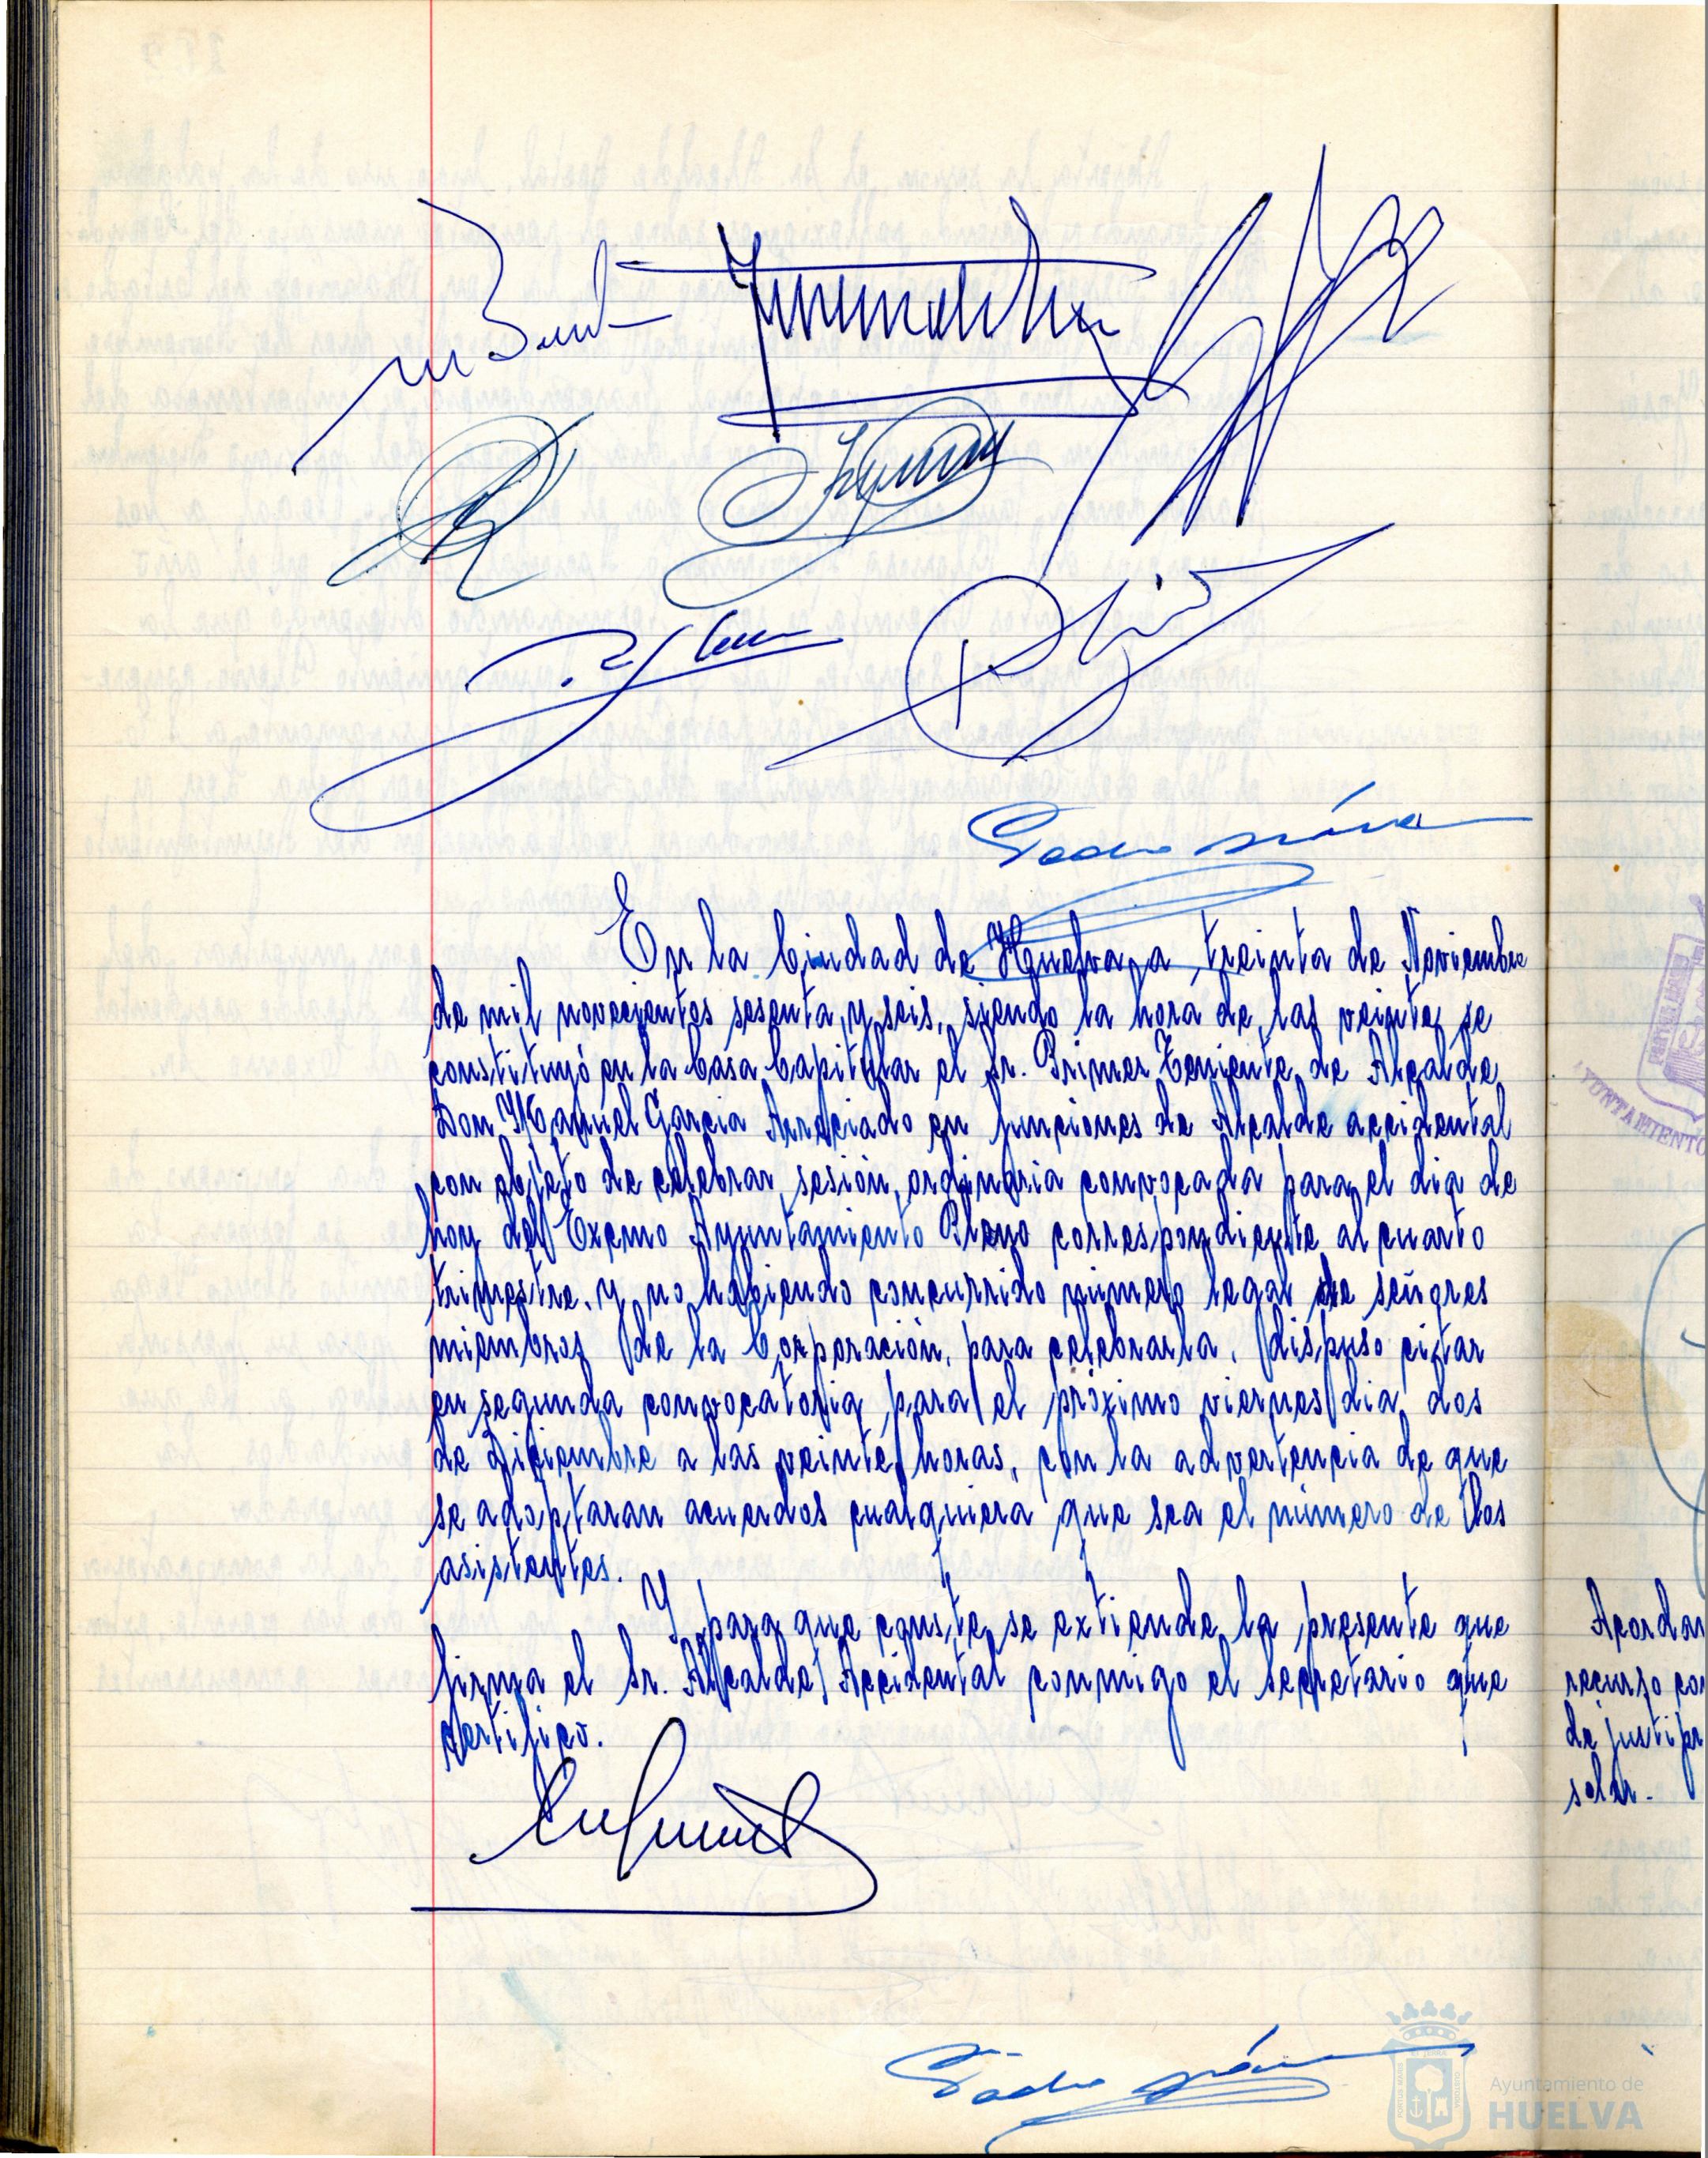 En la Ciudad de Huelva a treinta de Noviembre
de mil novecientos sesenta y seis, siendo la hora de las veinte, se
constituyó en la Casa Capitular el Sr. Primer Teniente de Alcalde
Don Manuel Garcia en funciones de Alcalde accidental
con objeto de celebrar sesión ordinaria convocada para el dia de
hoy del Excmo Ayuntamiento Pleno correspondiente al cuarto
trimestre, y no habiendo concurrido número legal de señores
miembros de la Corporación, para celebrarla, dispuso citar
en segunda convocatoria para el próximo viernes dia dos
de Diciembre a las veinte horas, con la advertencia de que
se adoptaran acuerdos cualquiera que sea el número de los
asistentes.
Y para que conste se extiende la presente que
firma el Sr. Alcalde Accidental conmigo el Secretario que
certifico.
recurso
de
solar.
AYUNTAMIENTO
Ayuntamiento de
HUELVA